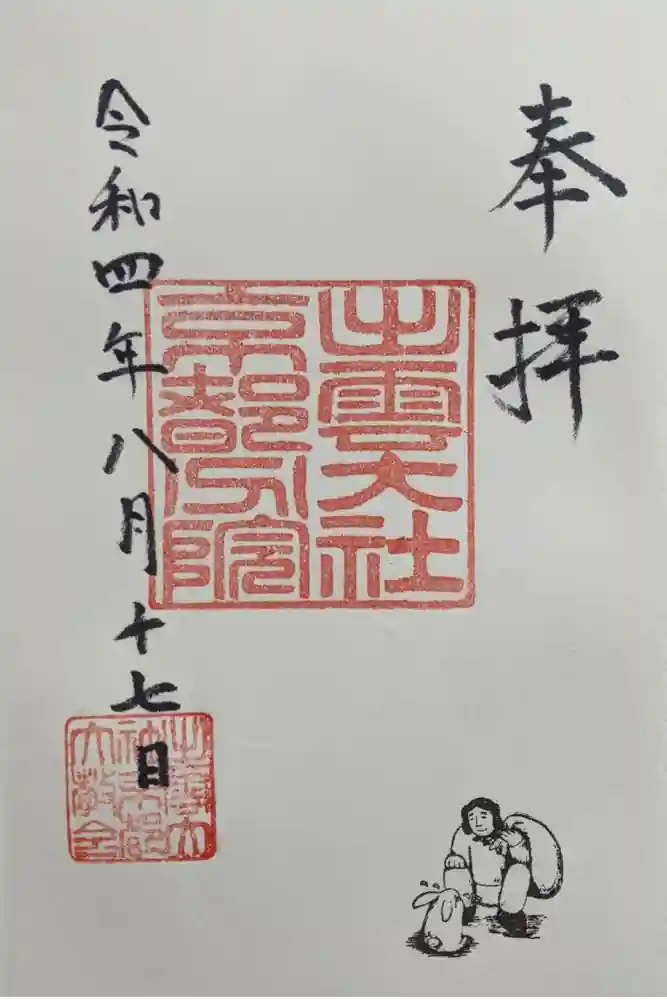 奉拝
出雲大社
京都分院
令和四年八月十七日
出雲大
社京都
大教会